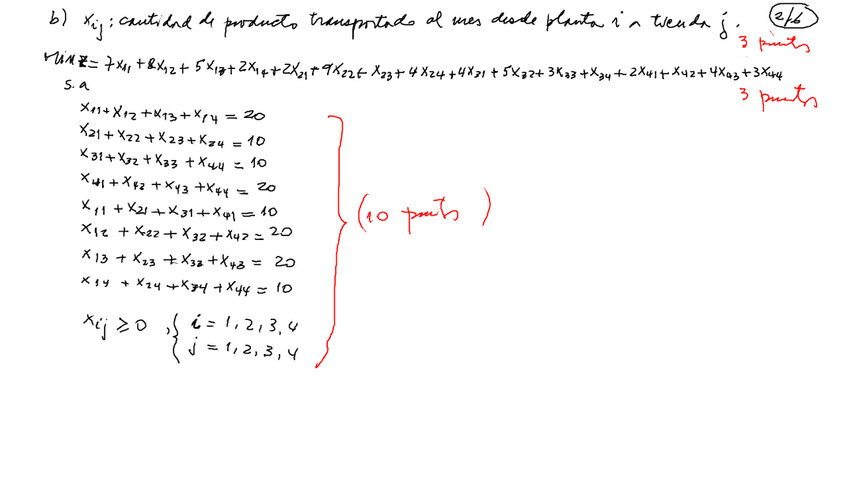 b) xij: cantidad de producto transportado al mes desde planta i a tienda j. 2/6
3 puntos
Min Z = 7x11 + 8x12 + 5x13 + 2x14 + 2x21 + 9x22 + x23 + 4x24 + 4x31 + 5x32 + 3x33 + x34 + 2x41 + x42 + 4x43 + 3x44
3 puntos
s.a
x11 + x12 + x13 + x14 = 20
x21 + x22 + x23 + x24 = 10
x31 + x32 + x33 + x44 = 10
x41 + x42 + x43 + x44 = 20
x11 + x21 + x31 + x41 = 10
x12 + x22 + x32 + x42 = 20
x13 + x23 + x33 + x43 = 20
x14 + x24 + x34 + x44 = 10
(10 puntos)
xij ≥ 0 , { i = 1, 2, 3, 4
j = 1, 2, 3, 4